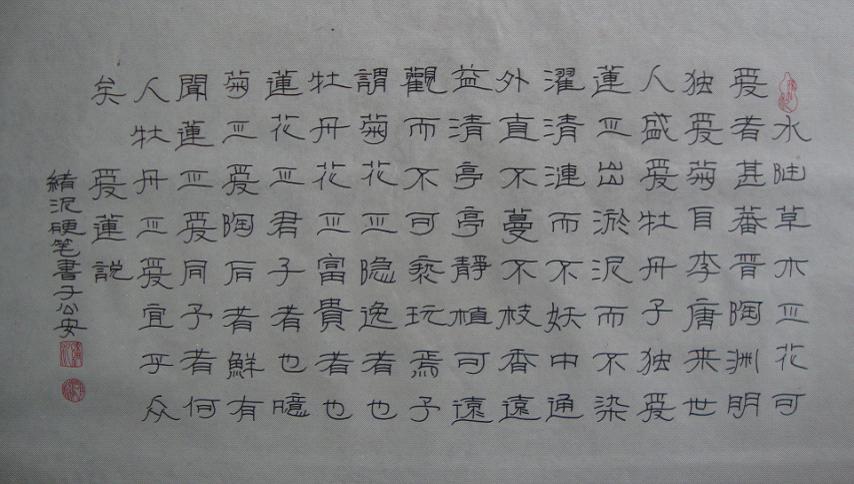 水陆草木之花可
爱者甚蕃晋陶渊明
独爱菊自李唐来世
人盛爱牡丹予独爱
蓮之出淤泥而不染
濯清漣而不妖中通
外直不蔓不枝香遠
益清亭亭靜植可遠
觀而不可亵玩焉予
謂菊花之隐逸者也
牡丹花之富貴者也
蓮花之君子者也噫
菊之爱陶后者鮮有
聞蓮之爱同予者何
人牡丹之爱宜乎众
矣 爱蓮説
緒泥硬笔書于公安